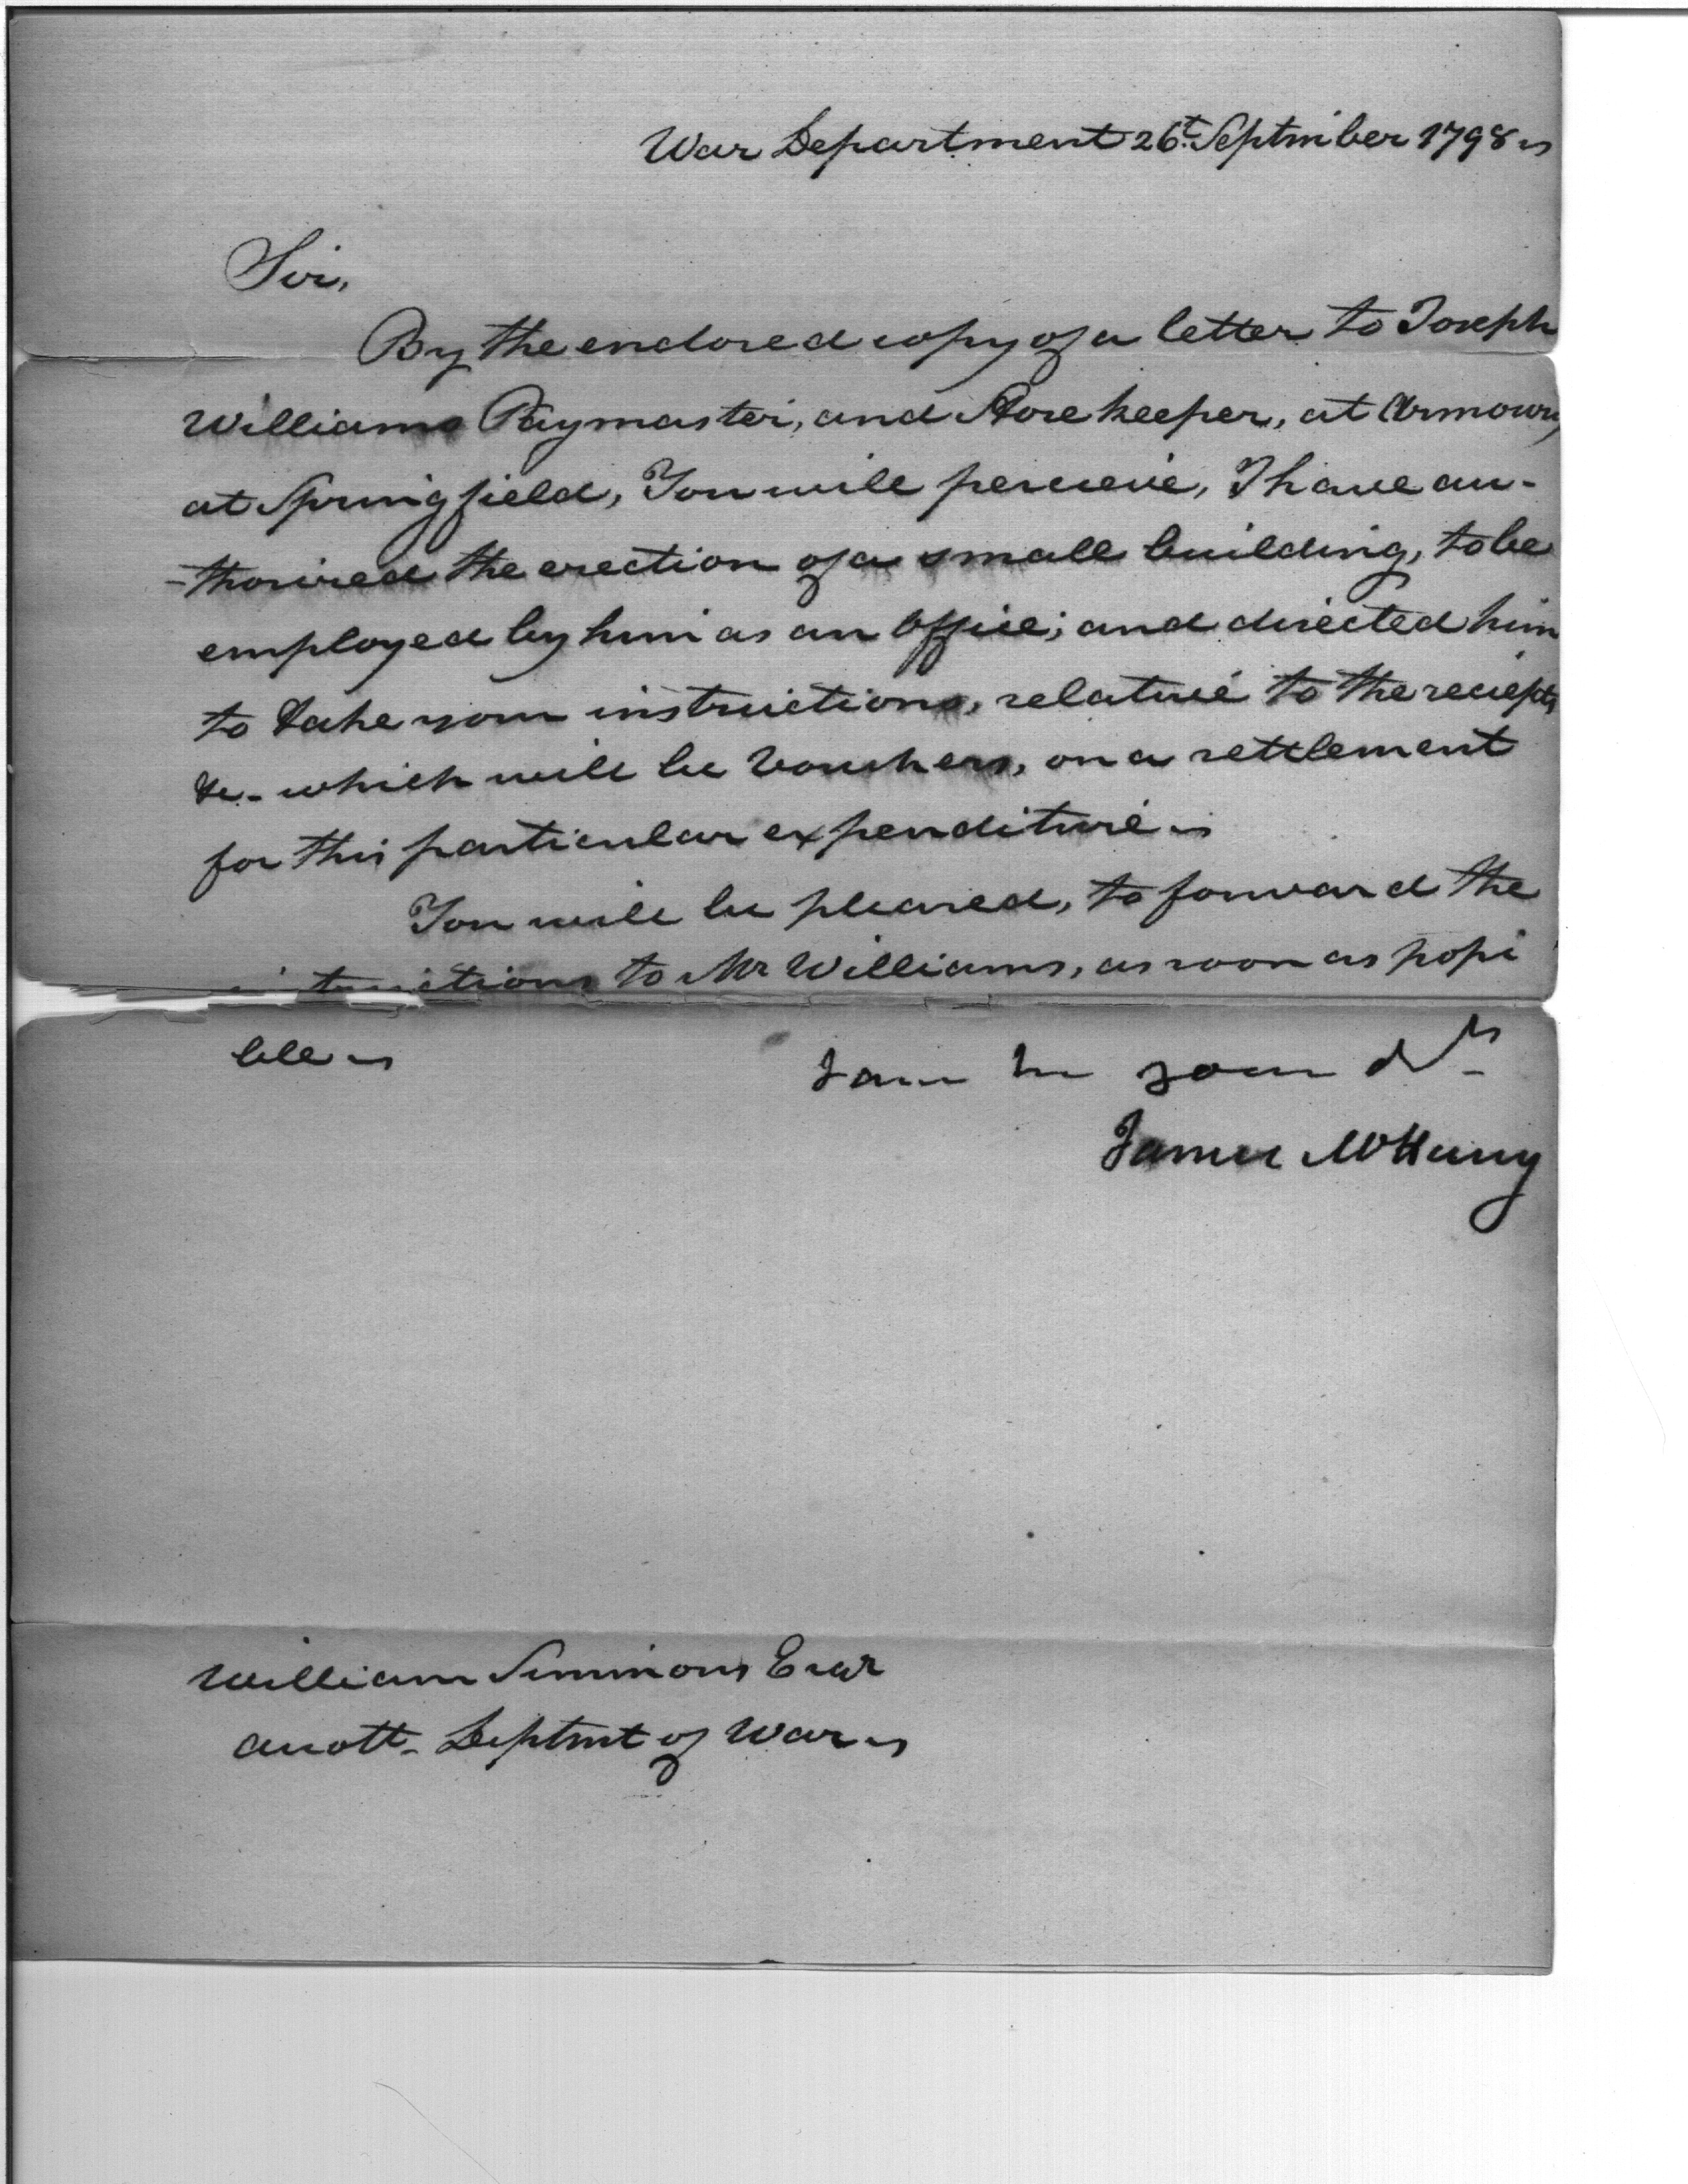 War Department 26t. September 1798
Sir,
By the enclosed copy of a letter to Joseph
Williams Paymaster, and Store keeper, at Armoury
at Springfield, You will perceive, I have au-
-thorised the erection of a small building, to be
employed by him as an Office; and directed him
to take your instructions, relative to the reciepts
&c. which will be Vouchers, on a settlement
for this particular expenditure
You will be pleased, to forward the
instructions to Mr Williams, as soon as possi
ble
I am Sir your
James McHenry
William Simmons Esqr
Accott. Deptmt of War